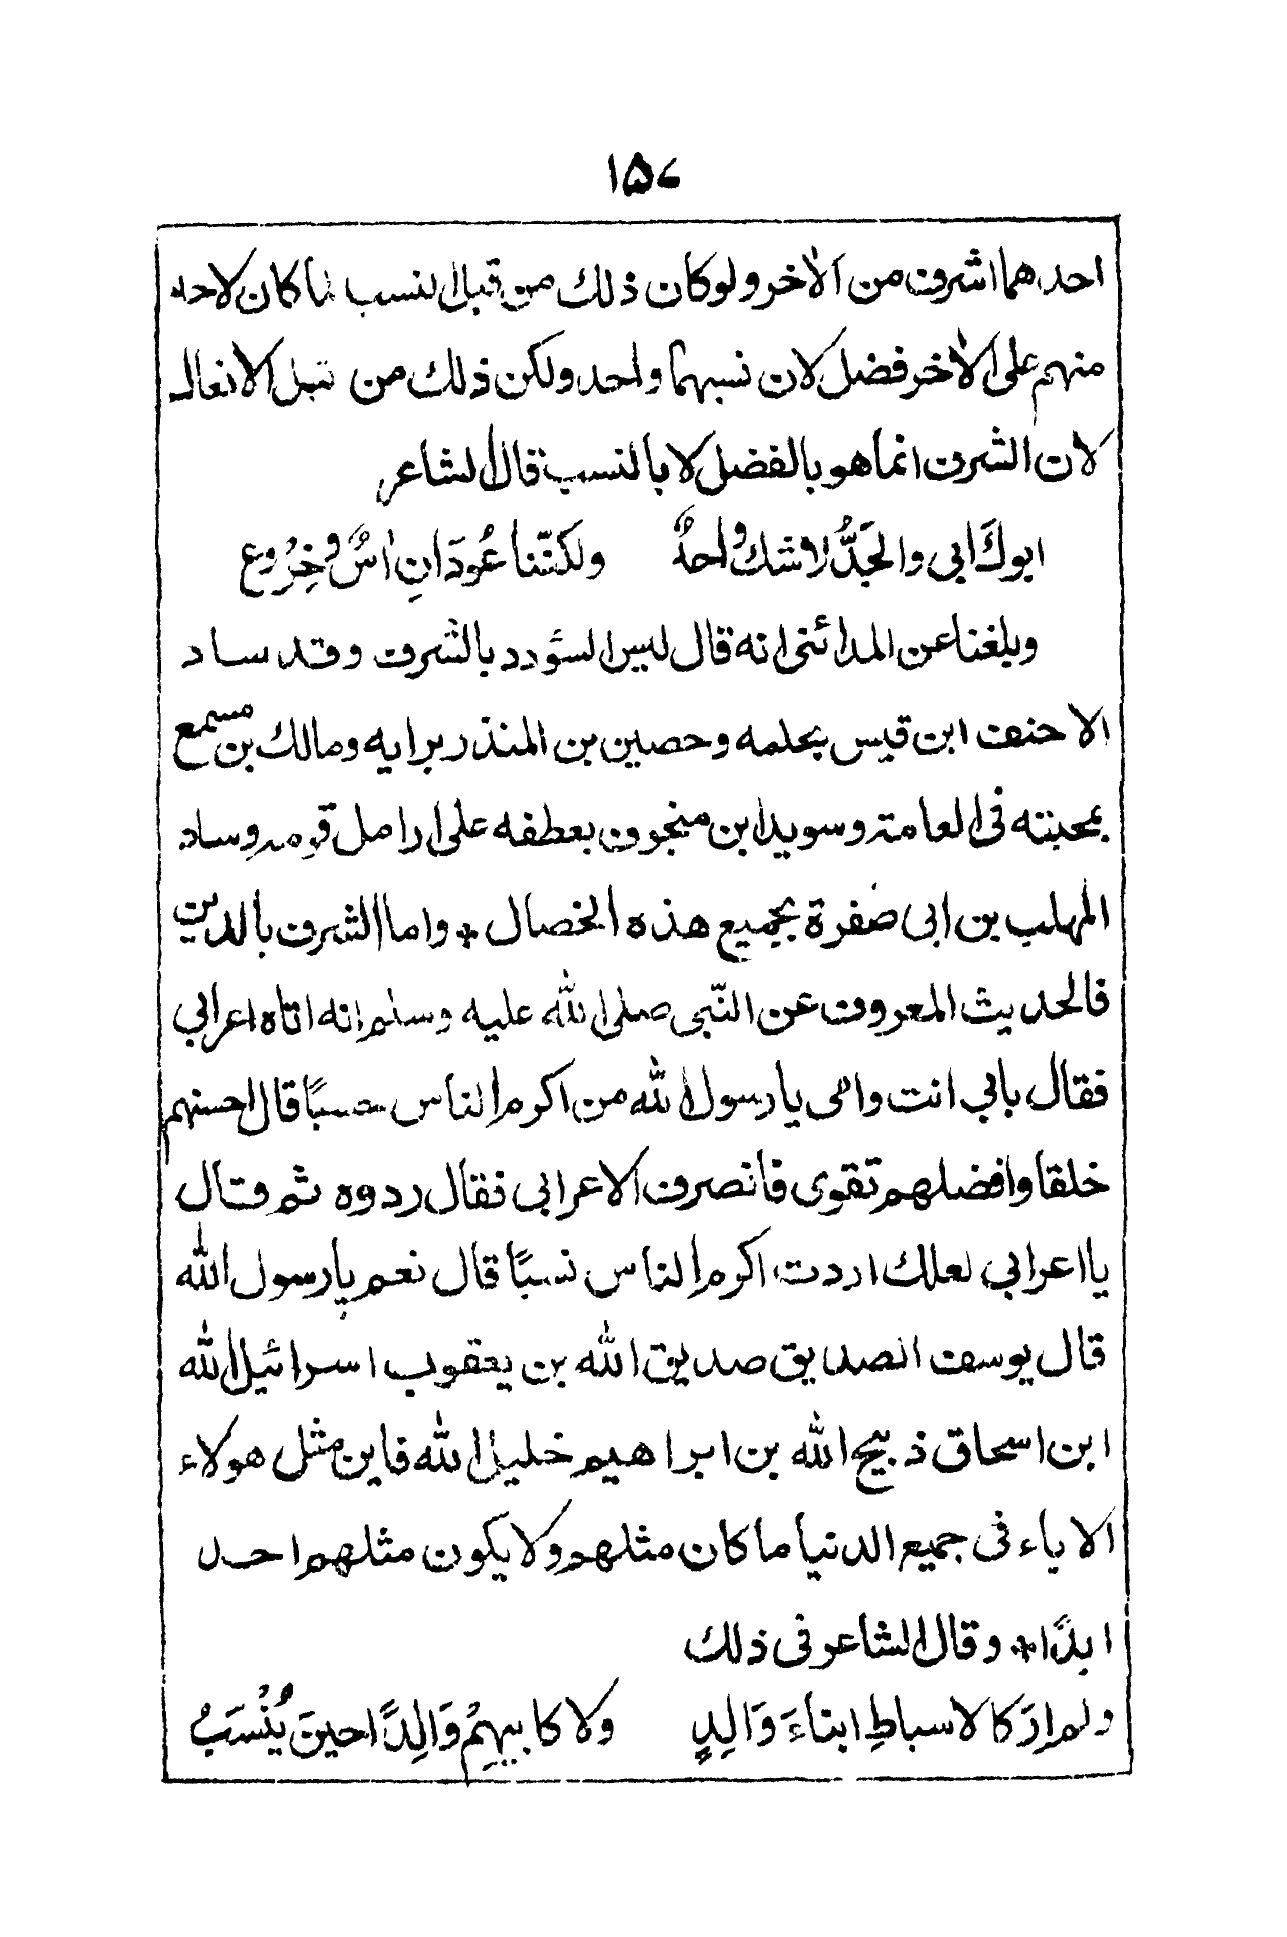 ١٥٧
احدهما اشرف من الاٰخر ولو كان ذلك من قبل النسب لما كان لاحد
منهم على الاٰخر فضل لان نسبهما واحد ولكن ذلك من قبل الافعال
لان الشرف انما هو بالفضل لا بالنسب قال الشاعر
ابوكَ ابى والجَدُّ لا شك واحدٌ ولكنّنا عُودَانِ اٰسٌ وخِرُوع
وبلغنا عن المدائنى انه قال ليس السؤدد بالشرف وقد ساد
الاحنف ابن قيس بحلمه وحصين بن المنذر برايه ومالك بن مسمع
بمحبته فى العامة وسويد ابن منجوف بعطفه على ارامل قومه وساد
المهلب بن ابى صفرة بجميع هذه الخصال * واما الشرف بالدين
فالحديث المعروف عن النّبى صلى الله عليه وسلم انه اتاه اعرابي
فقال بابي انت وامى يا رسول الله من اكرم الناس حسبًا قال احسنهم
خلقا وافضلهم تقوى فانصرف الاعرابى فقال ردوه ثم قال
يا اعرابي لعلك اردت اكرم الناس نسبًا قال نعم يا رسول الله
قال يوسف الصديق صديق الله بن يعقوب اسرائيل الله
ابن اسحاق ذبيح الله بن ابراهيم خليل الله فاين مثل هولاء
الاباء فى جميع الدنيا ما كان مثلهم ولا يكون مثلهم احد
ابدًا * وقال الشاعر فى ذلك
ولم ارَ كالاسباطِ ابناءَ وَالِدٍ ولا كابيهِمْ وَالِدًا حينَ يُنْسَبُ